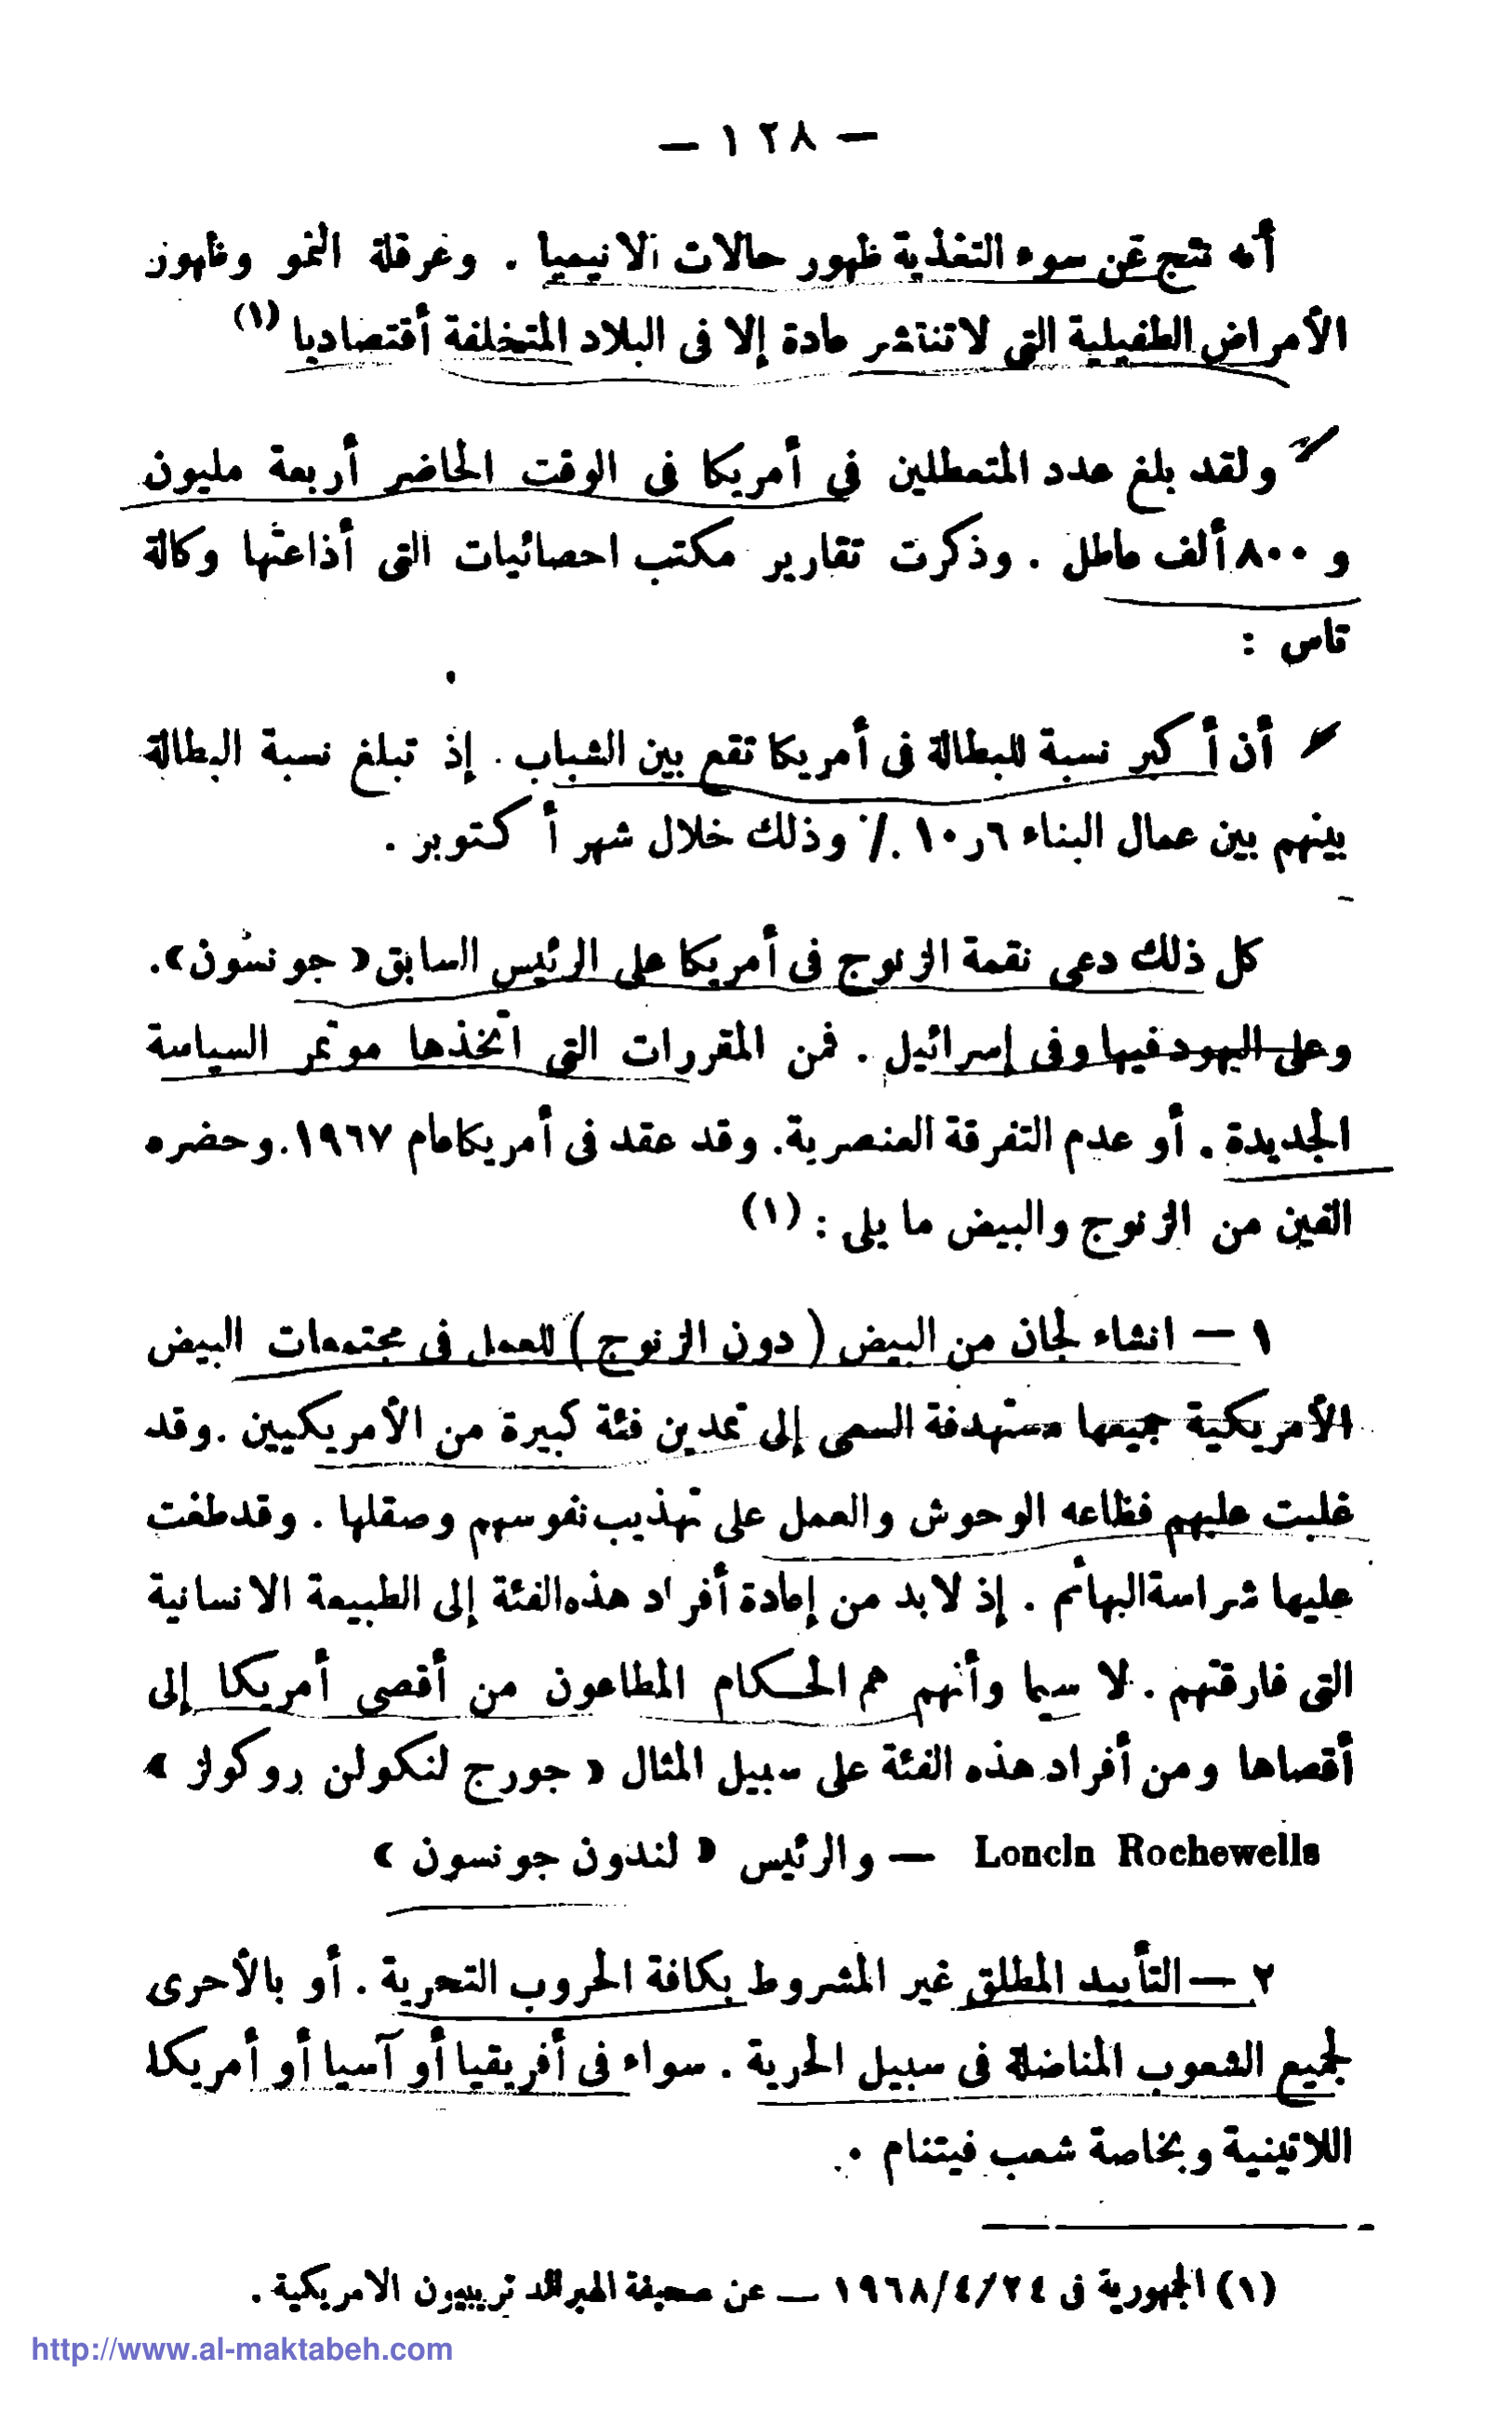 — ١٢٨ —
أنه نتج عن سوء التغذية ظهور حالات الانيميا . وعرقلة النمو وظهور
الأمراض الطفيلية التى لاتنتشر عادة إلا فى البلاد المتخلفة أقتصاديا (١)
ولقد بلغ عدد المتعطلين فى أمريكا فى الوقت الحاضر أربعة مليون
و ٨٠٠ ألف عاطل . وذكرت تقارير مكتب احصائيات التى أذاعتها وكالة
تاس :
أن أكبر نسبة للبطالة فى أمريكا تقع بين الشباب . إذ تبلغ نسبة البطالة
بينهم بين عمال البناء ٦ر١٠ ٪ وذلك خلال شهر أكتوبر .
كل ذلك دعى نقمة الزنوج فى أمريكا على الرئيس السابق « جونسون » .
وعلى اليهود فيها وفى إسرائيل . فمن المقررات التى اتخذها موتمر السياسة
الجديدة . أو عدم التفرقة العنصرية . وقد عقد فى أمريكا عام ١٩٦٧ . وحضره
الفين من الزنوج والبيض ما يلى : (١)
١ — انشاء لجان من البيض ( دون الزنوج ) للعمل فى مجتمعات البيض
الأمريكية جميعها مستهدفة السعى إلى تمدين فئة كبيرة من الأمريكيين . وقد
غلبت عليهم فظاعه الوحوش والعمل على تهذيب نفوسهم وصقلها . وقد طغت
عليها شراسة البهائم . إذ لابد من إعادة أفراد هذه الفئة إلى الطبيعة الانسانية
التى فارقتهم . لا سيما وأنهم هم الحكام المطاعون من أقصى أمريكا إلى
أقصاها ومن أفراد هذه الفئة على سبيل المثال « جورج لنكولن روكولز »
Loncln Rochewells — والرئيس « لندون جونسون »
٢ — التأييد المطلق غير المشروط بكافة الحروب التحرية . أو بالأحرى
لجميع الشعوب المناضلة فى سبيل الحرية . سواء فى أفريقيا أو آسيا أو أمريكا
اللاتينية وبخاصة شعب فيتنام .
(١) الجمهورية فى ١٩٦٨/٤/٢٤ — عن صحيفة الهيرالد تريبيون الامريكية .
http://www.al-maktabeh.com